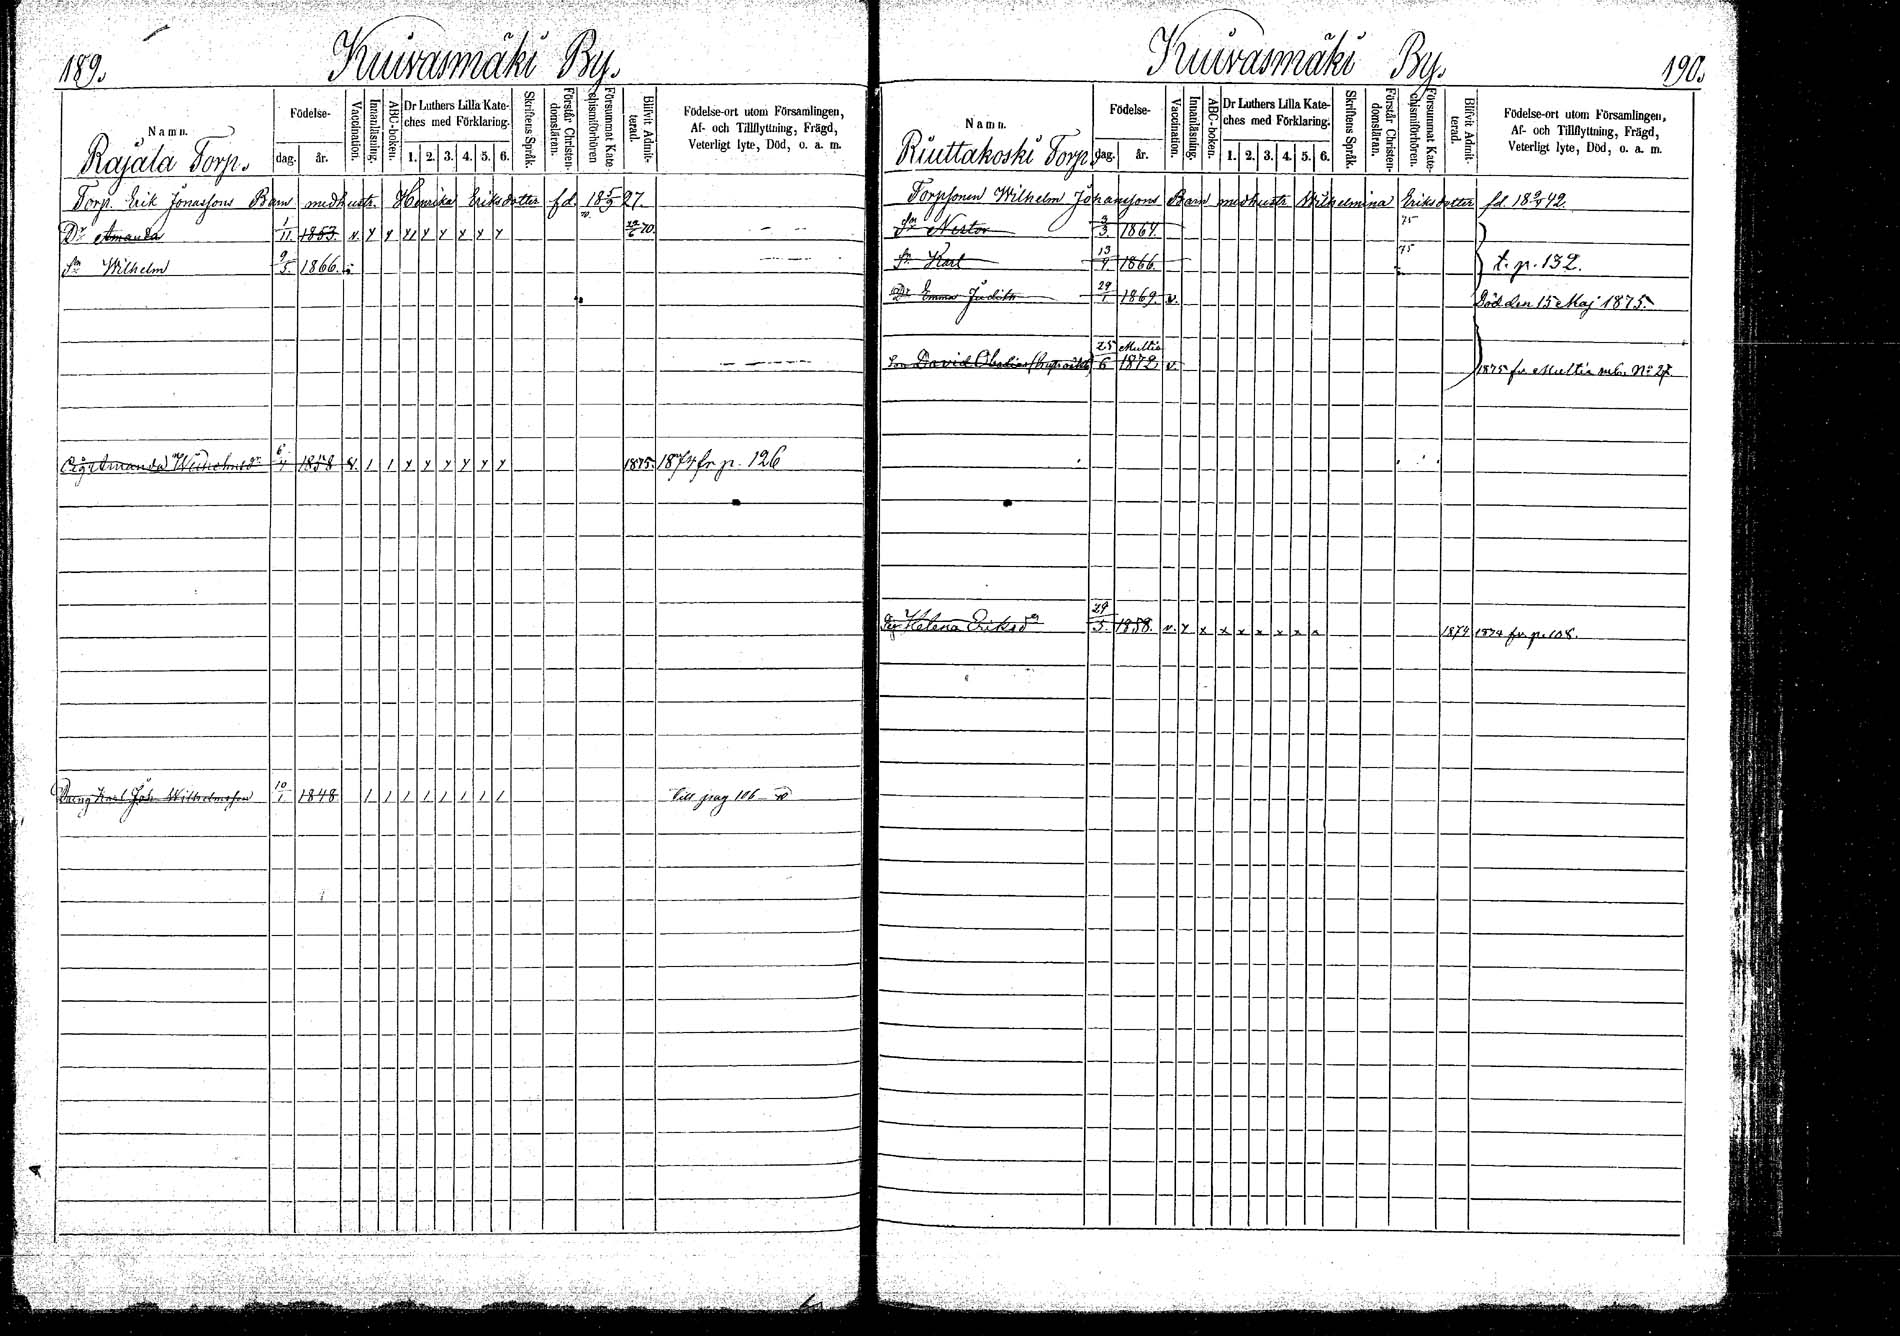 189.
Kuivasmäki By.
Namn.
Födelse-
dag.
år.
Vaccination.
Innanläsning.
ABC-boken.
Dr Luthers Lilla Kate-
ches med Förklaring.
1. 2. 3. 4. 5. 6.
Skriftens Språk.
Förstår Christen-
domsläran.
Försummat Kate-
chismiförhören
Blifvit Admit-
terad.
Födelse-ort utom Församlingen,
Af- och Tillflyttning, Frägd,
Veterligt lyte, Död, o. a. m.
Rajala Torp.
Torp. Erik Jonassons Barn med hustr. Henrika Eriksdotter fd. 18 5/9 27.
Dr Amanda 1/11 1853. v. 70.
Sn Wilhelm 9/5 1866.
Pig. Amanda Wilhelmsdr 6/4 1858 v. 1 1 1875. 1874 fr p. 126
Dräng Karl Joh. Wilhelmsson 10/1 1848 1 1 1 1 1 1 1 1 Till pag 106
190.
Kuivasmäki By.
Namn.
Födelse-
dag.
år.
Vaccination.
Innanläsning.
ABC-boken.
Dr Luthers Lilla Kate-
ches med Förklaring.
1. 2. 3. 4. 5. 6.
Skriftens Språk.
Förstår Christen-
domsläran.
Försummat Kate-
chismiförhören.
Blifvit Admit-
terad.
Födelse-ort utom Församlingen,
Af- och Tillflyttning, Frägd,
Veterligt lyte, Död, o. a. m.
Riuttakoski Torp.
Torpsonen Wilhelm Johanssons Barn med hustr. Wilhelmina Eriksdotter fd. 42.
Sn Nestor 3/3. 1864. 75
Sn Karl 13/4 1866. 75 t. p. 132.
Dr Emma Judith 29/1 1869. v. Död den 15 Maj 1875.
Son David 25/6 Multia 1872 v. 1875 fr Multia mb. No 27.
Pig. Helena Eriksdr 29/5. 1858. v. 1874 1874 fr p. 108.